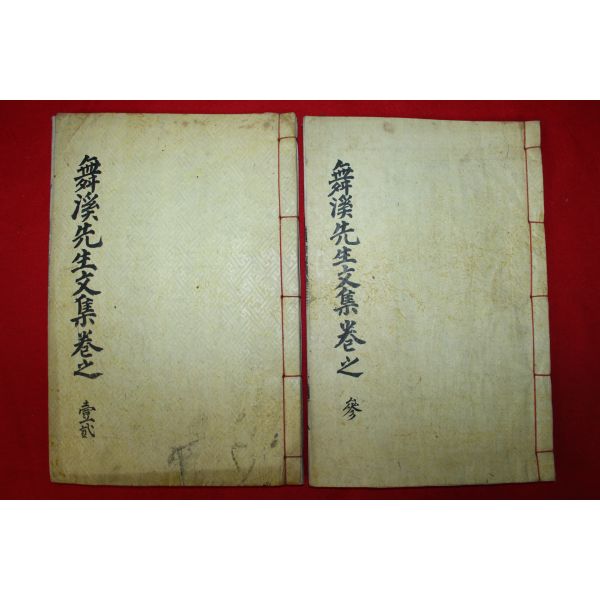 舞溪先生文集卷之
壹貳
舞溪先生文集卷之
參